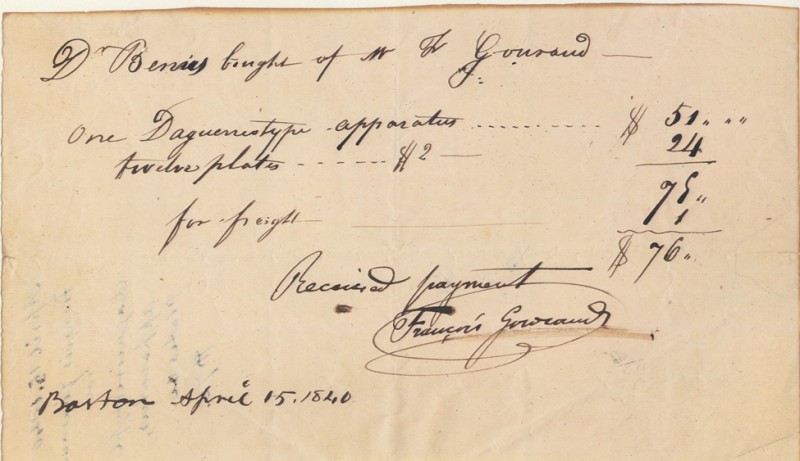 Dr Bemis bought of Mr F Gouraud —
One Daguerreotype apparatus .......... $ 51 " "
twelve plates - - - - - $2 — 24
75 "
for freight — 1
$ 76 "
Received payment
François Gouraud
Boston April 15. 1840